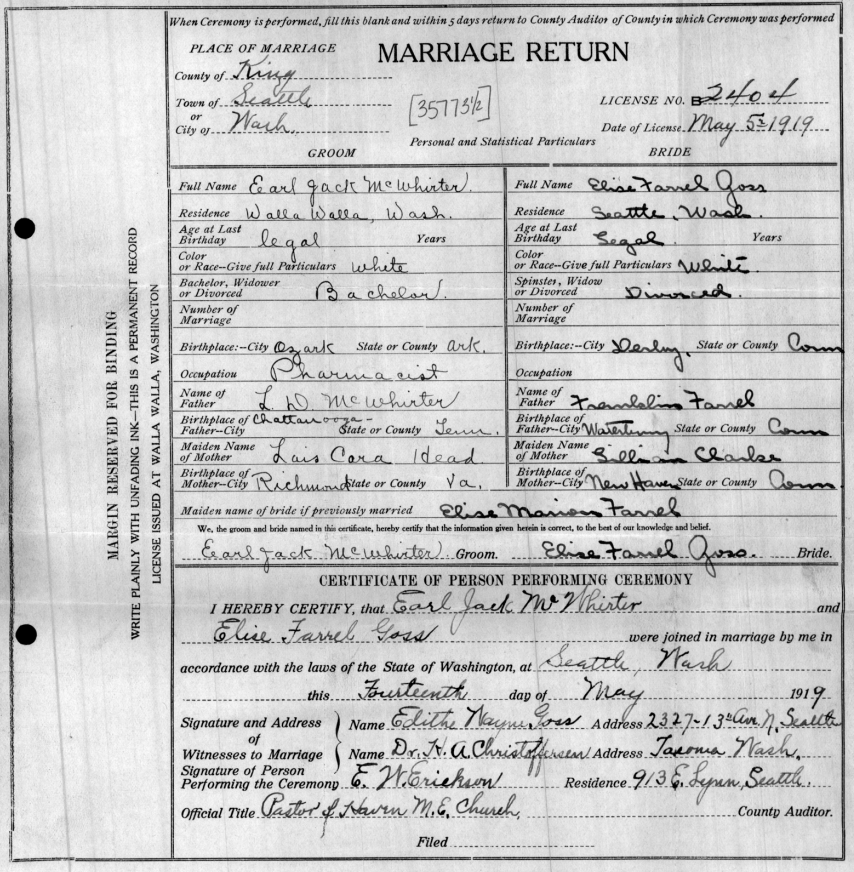 When Ceremony is performed, fill this blank and within 5 days return to County Auditor of County in which Ceremony was performed
PLACE OF MARRIAGE
MARRIAGE RETURN
County of King
Town of Seattle
or
City of Wash.
[35773½]
LICENSE NO. B2404
Date of License May 5th 1919
Personal and Statistical Particulars
GROOM BRIDE
Full Name Earl Jack McWhirter. Full Name Elise Farrel Goss
Residence Walla Walla, Wash. Residence Seattle, Wash.
Age at Last Birthday legal Years Age at Last Birthday Legal. Years
Color or Race--Give full Particulars white Color or Race--Give full Particulars White.
Bachelor, Widower or Divorced Bachelor. Spinster, Widow or Divorced Divorced.
Number of Marriage Number of Marriage
Birthplace:--City Ozark State or County Ark. Birthplace:--City Derby, State or County Conn
Occupation Pharmacist Occupation
Name of Father L. D. McWhirter Name of Father Franklin Farrel
Birthplace of Father--City Chattanooga- State or County Tenn. Birthplace of Father--City Waterbury State or County Conn
Maiden Name of Mother Lais Cora Head Maiden Name of Mother Lillian Clarke
Birthplace of Mother--City Richmond State or County Va. Birthplace of Mother--City New Haven State or County Conn.
Maiden name of bride if previously married Elise Marion Farrel
We, the groom and bride named in this certificate, hereby certify that the information given herein is correct, to the best of our knowledge and belief.
Earl Jack McWhirter Groom. Elise Farrel Goss. Bride.
CERTIFICATE OF PERSON PERFORMING CEREMONY
I HEREBY CERTIFY, that Earl Jack McWhirter and
Elise Farrel Goss were joined in marriage by me in
accordance with the laws of the State of Washington, at Seattle, Wash
this Fourteenth day of May 1919
Signature and Address of Witnesses to Marriage
Name Edithe Wayne Goss Address 2327-13th Ave. N. Seattle
Name Dr. H. A. Christoffersen Address Tacoma Wash.
Signature of Person Performing the Ceremony E. W. Erickson Residence 913 E. Lynn, Seattle.
Official Title Pastor of Haven M.E. Church, County Auditor.
Filed
MARGIN RESERVED FOR BINDING
WRITE PLAINLY WITH UNFADING INK—THIS IS A PERMANENT RECORD
LICENSE ISSUED AT WALLA WALLA, WASHINGTON